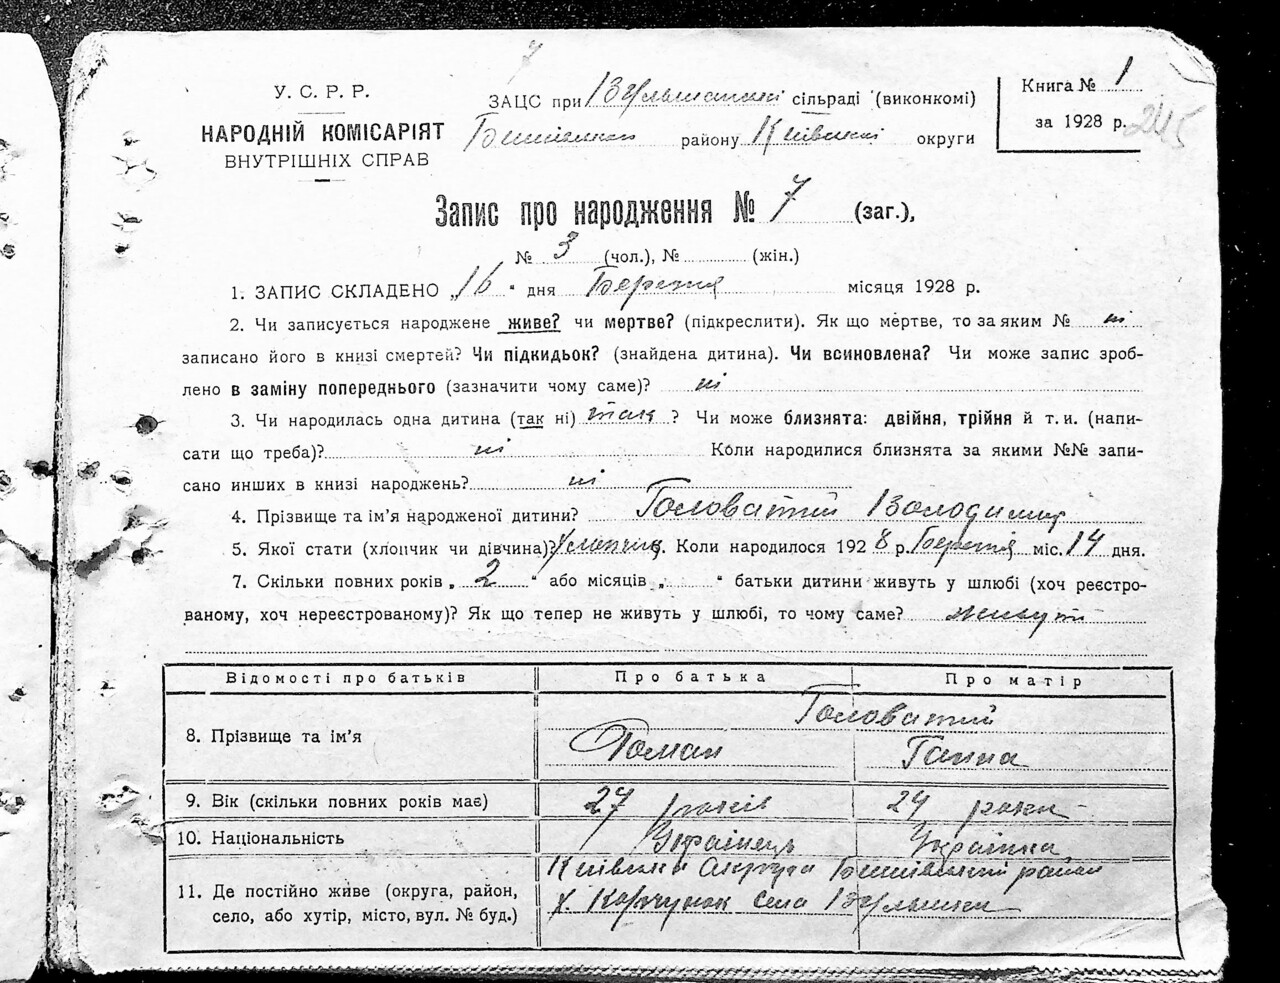 7
У. С. Р. Р.
НАРОДНІЙ КОМІСАРІЯТ
ВНУТРІШНІХ СПРАВ
ЗАЦС при сільраді (виконкомі)
району Київської округи
Книга № 1
за 1928 р. 245
Запис про народження № 7 (заг.),
№ 3 (чол.), № (жін.)
1. ЗАПИС СКЛАДЕНО „16“ дня Березня місяця 1928 р.
2. Чи записується народжене живе? чи мертве? (підкреслити). Як що мертве, то за яким № ні
записано його в книзі смертей? Чи підкидьок? (знайдена дитина). Чи всиновлена? Чи може запис зроб-
лено в заміну попереднього (зазначити чому саме)? ні
3. Чи народилась одна дитина (так ні) так ? Чи може близнята: двійня, трійня й т. и. (напи-
сати що треба)? ні Коли народилися близнята за якими №№ запи-
сано инших в книзі народжень? ні
4. Прізвище та ім'я народженої дитини? Головатий Володимир
5. Якої стати (хлопчик чи дівчина)? Хлопчик. Коли народилося 1928 р. Березня міс. 14 дня.
7. Скільки повних років „ 2 “ або місяців „ “ батьки дитини живуть у шлюбі (хоч реєстро-
ваному, хоч нереєстрованому)? Як що тепер не живуть у шлюбі, то чому саме? живуть
Відомості про батьків Про батька Про матір
8. Прізвище та ім'я Головатий
Роман Ганна
9. Вік (скільки повних років має) 27 років 24 роки
10. Національність Українець Українка
11. Де постійно живе (округа, район, Київська Округа район
село, або хутір, місто, вул. № буд.) х. Корчунок села